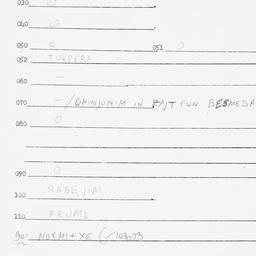 030 0
040 0
050 6 051 0
052
060 —
070 —/QMINJONIM IN BAJT FUN BESMEDR
080 0
090 0
100 RABE, JIM
110 FRUMK
90: NOXMITXE (/103073